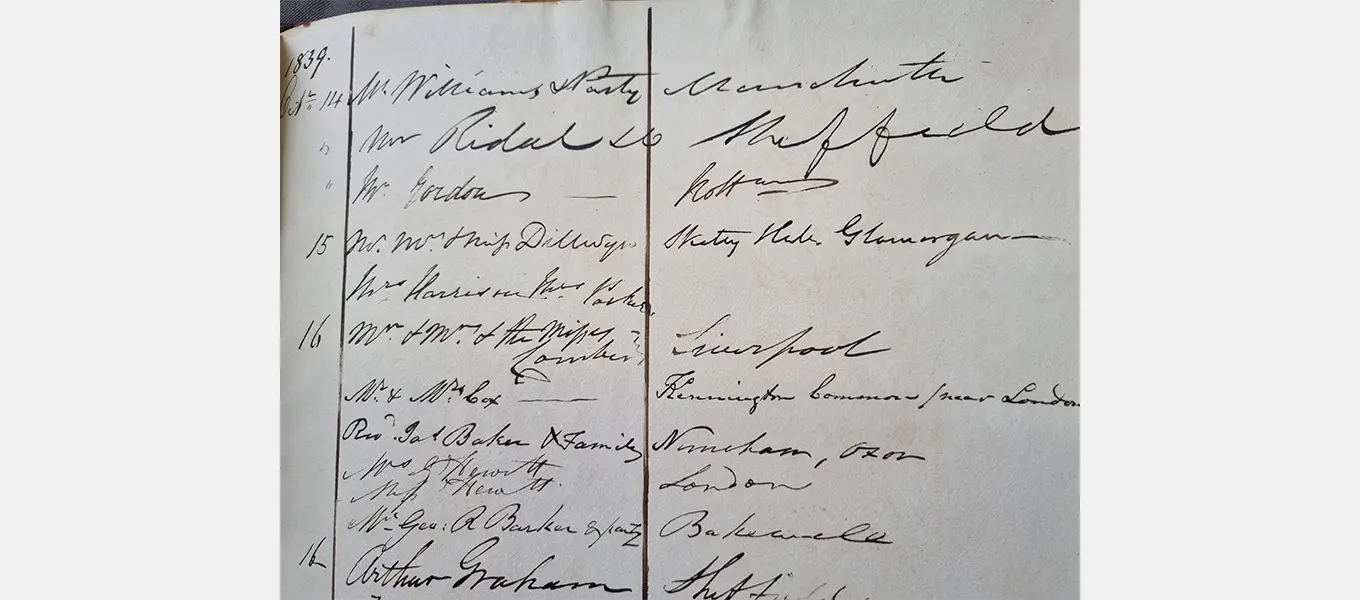 1839.
Octr 14 Mr Williams & Party Manchester
" Mr Ridal & Co Sheffield
" Mr Gordon — Notts
15 Mr. Mrs & Miss Dillwyn Sketty Glamorgan —
Mrs Harrison Mrs Parker
16 Mr & Mrs & the Misses
Lambert Liverpool
Mr & Mrs Cox — Kennington Common / near London
Revd Jas Baker & Family Nuneham, Oxon
Mrs Hewitt
Miss Hewitt London
Mr Geo: R Barker & party Bakewell
16 Arthur Graham Sheffield